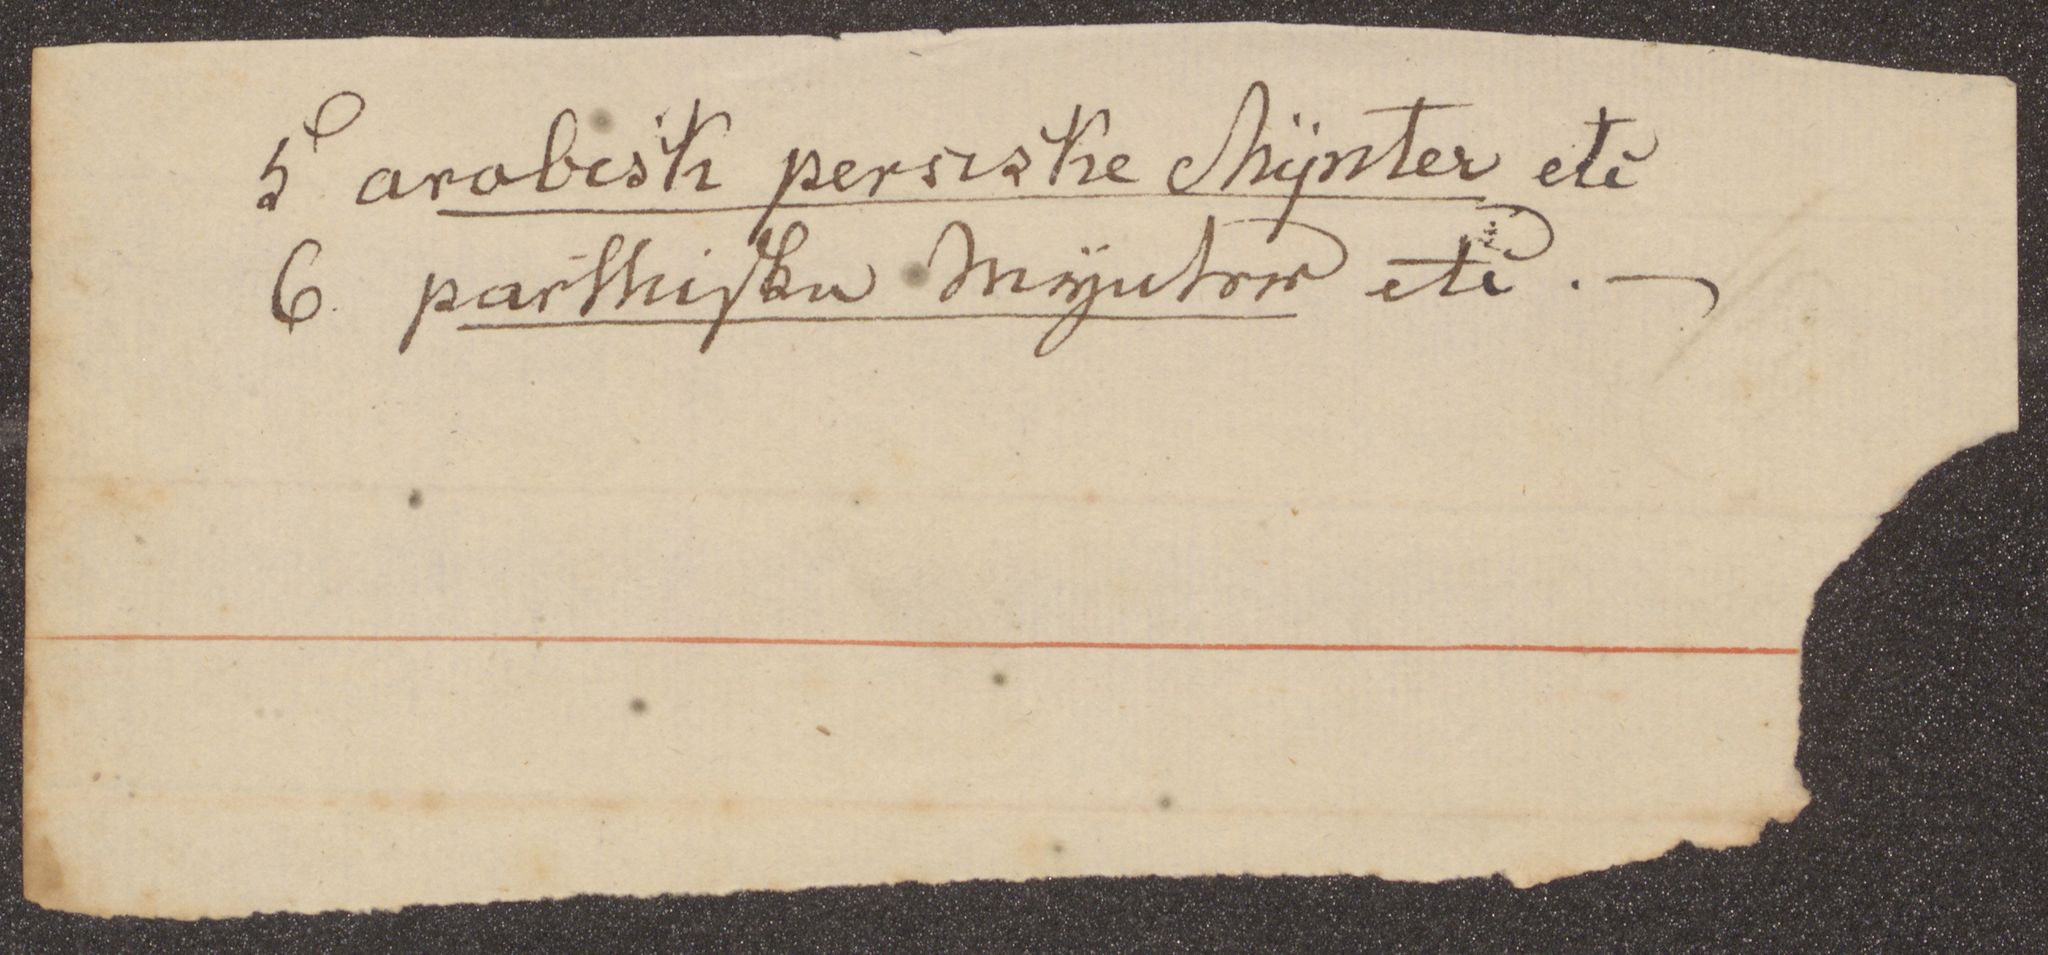 5 arabisk persiske Mÿnter etc
6. parthiske Mÿnter etc. —